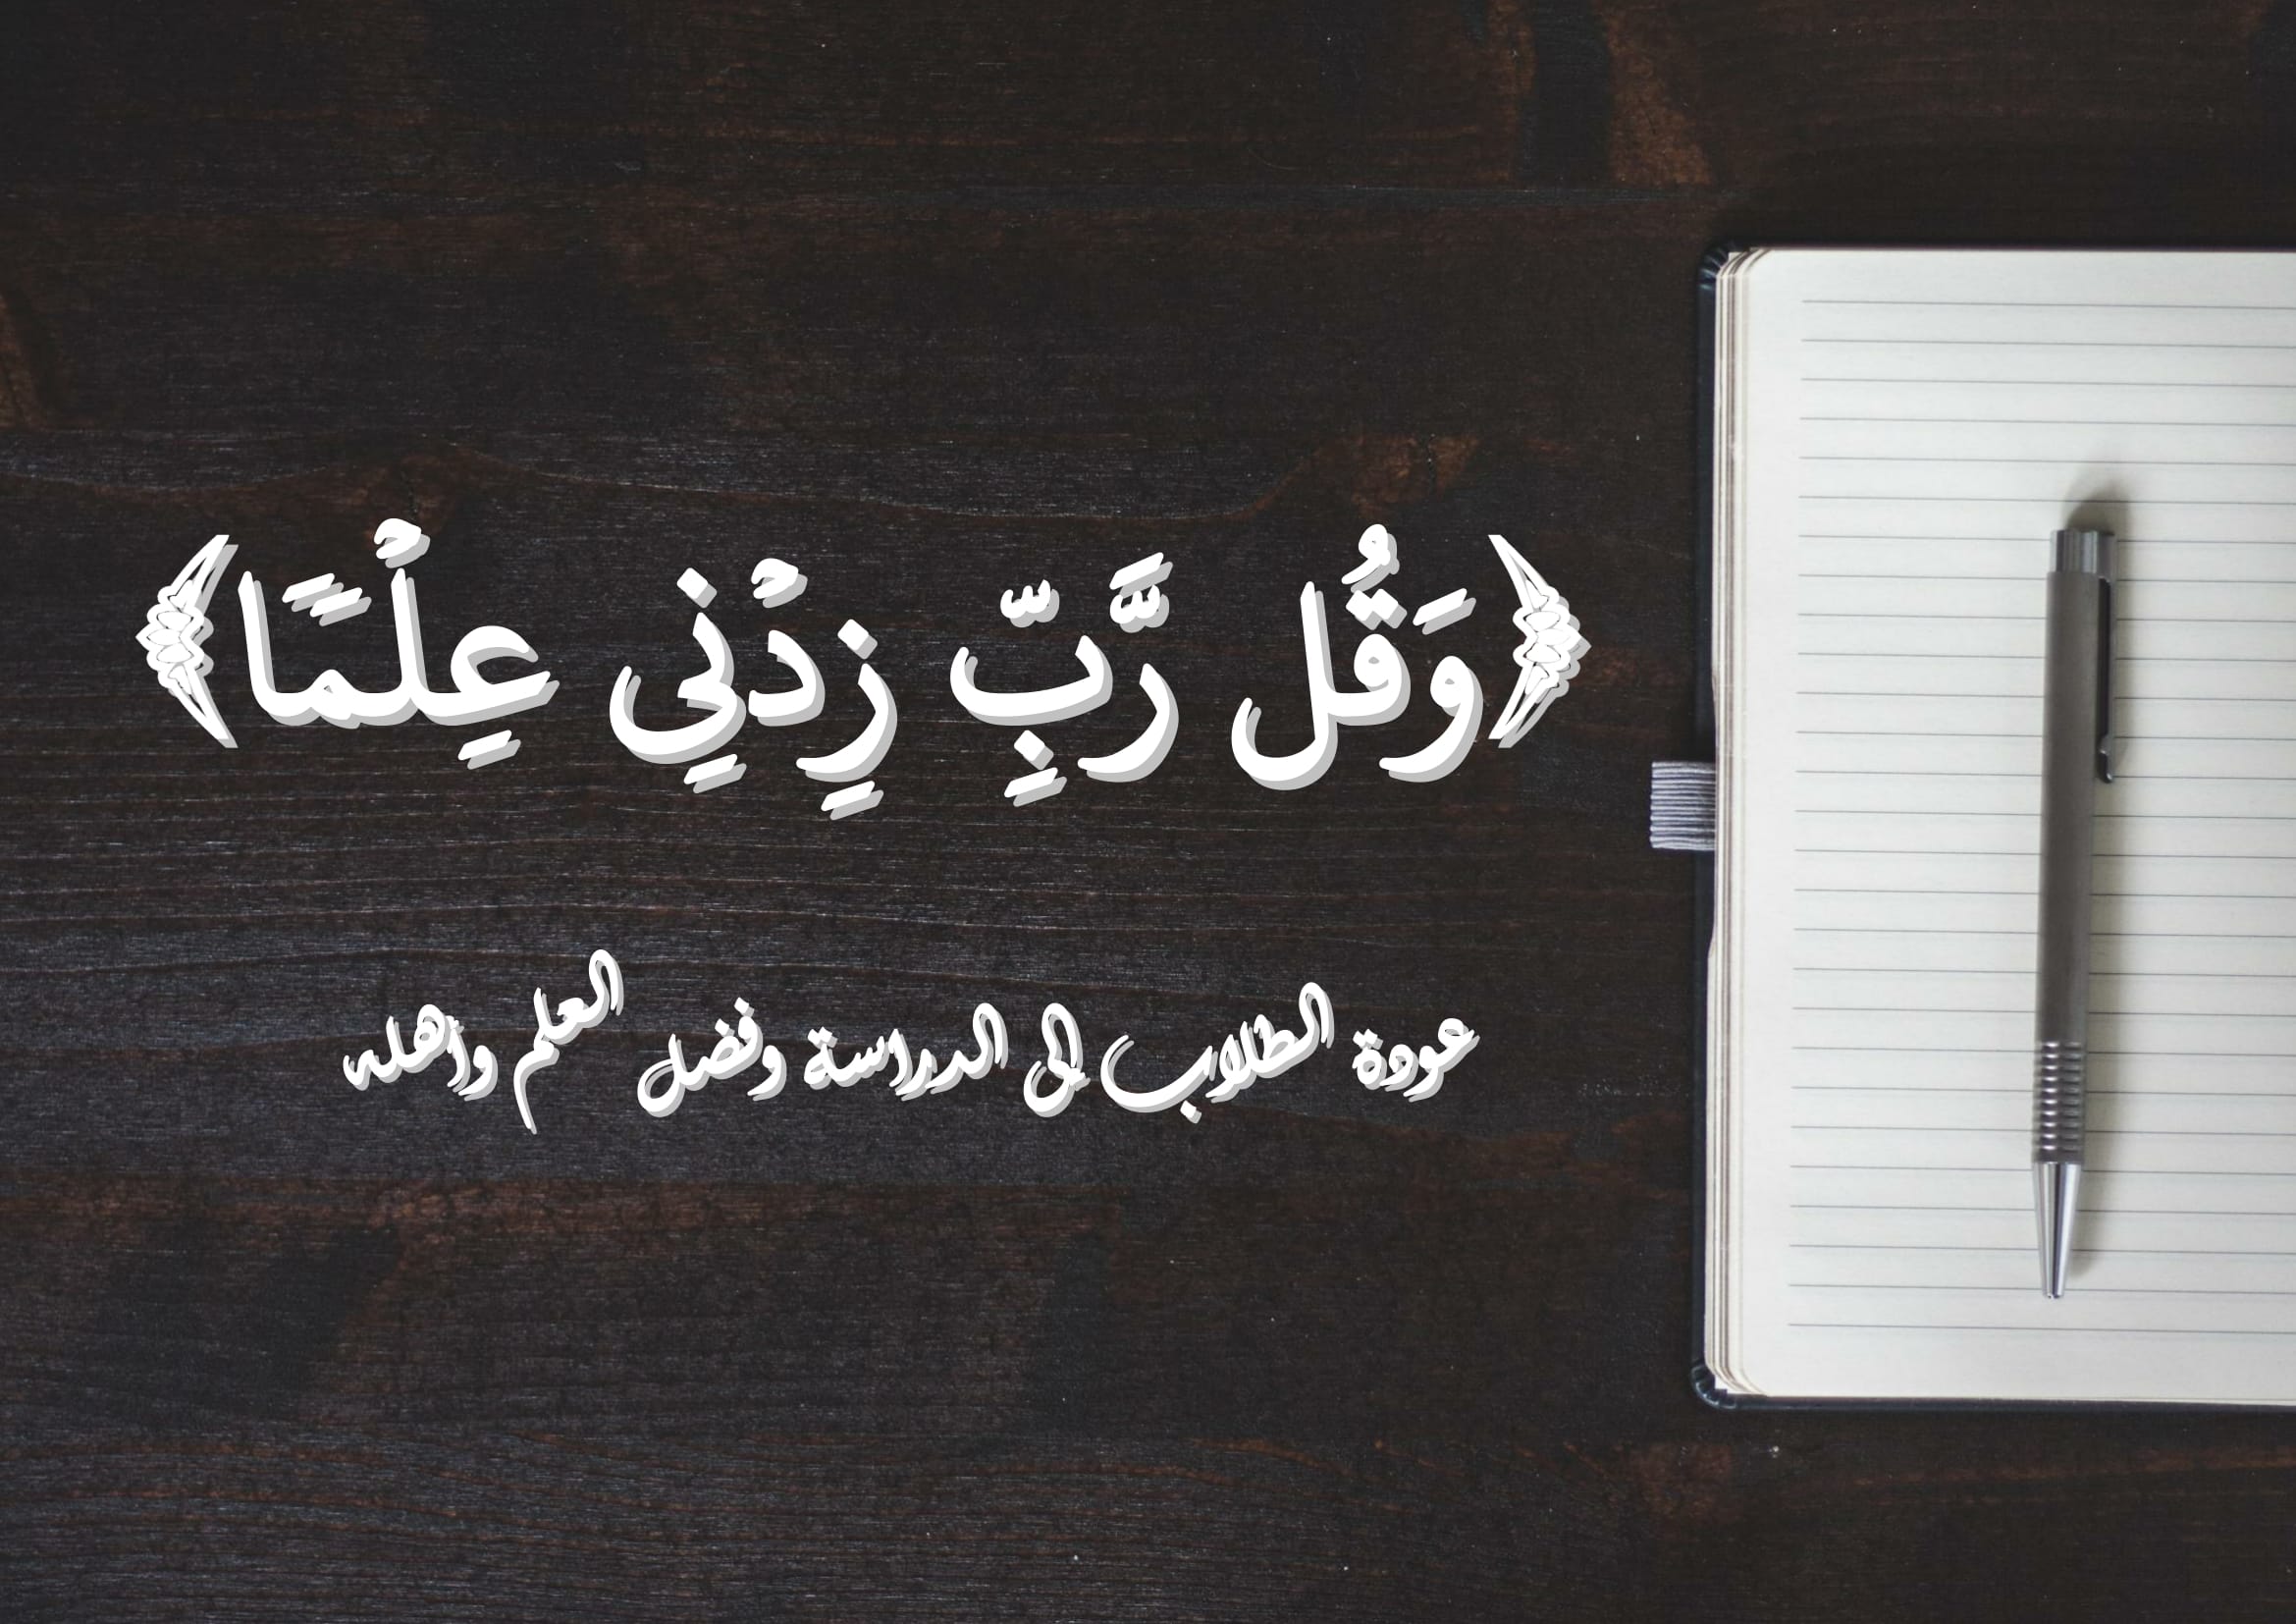 ﴿وَقُل رَّبِّ زِدْنِي عِلْمًا﴾
عودة الطلاب إلى الدراسة وفضل العلم وأهله